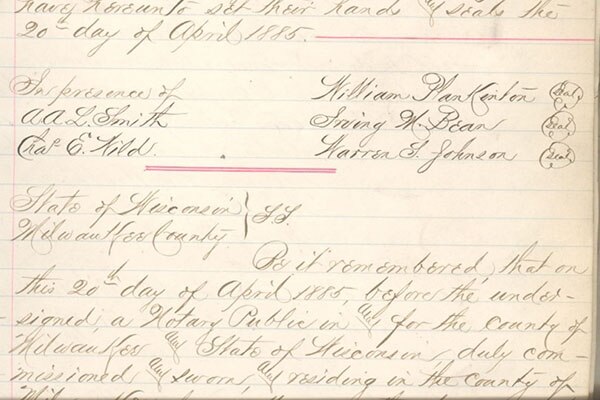 have hereunto set their hands and seals the
20th day of April 1885.
In presence of William Plankinton Seal
A.A.L. Smith Irving M. Bean Seal
Chas. E. Wild. Warren S. Johnson Seal
State of Wisconsin } S.S.
Milwaukee County.
Be it remembered, that on
this 20th day of April 1885, before the under-
signed, a Notary Public in and for the county of
Milwaukee and State of Wisconsin, duly com-
missioned and sworn, and residing in the county of